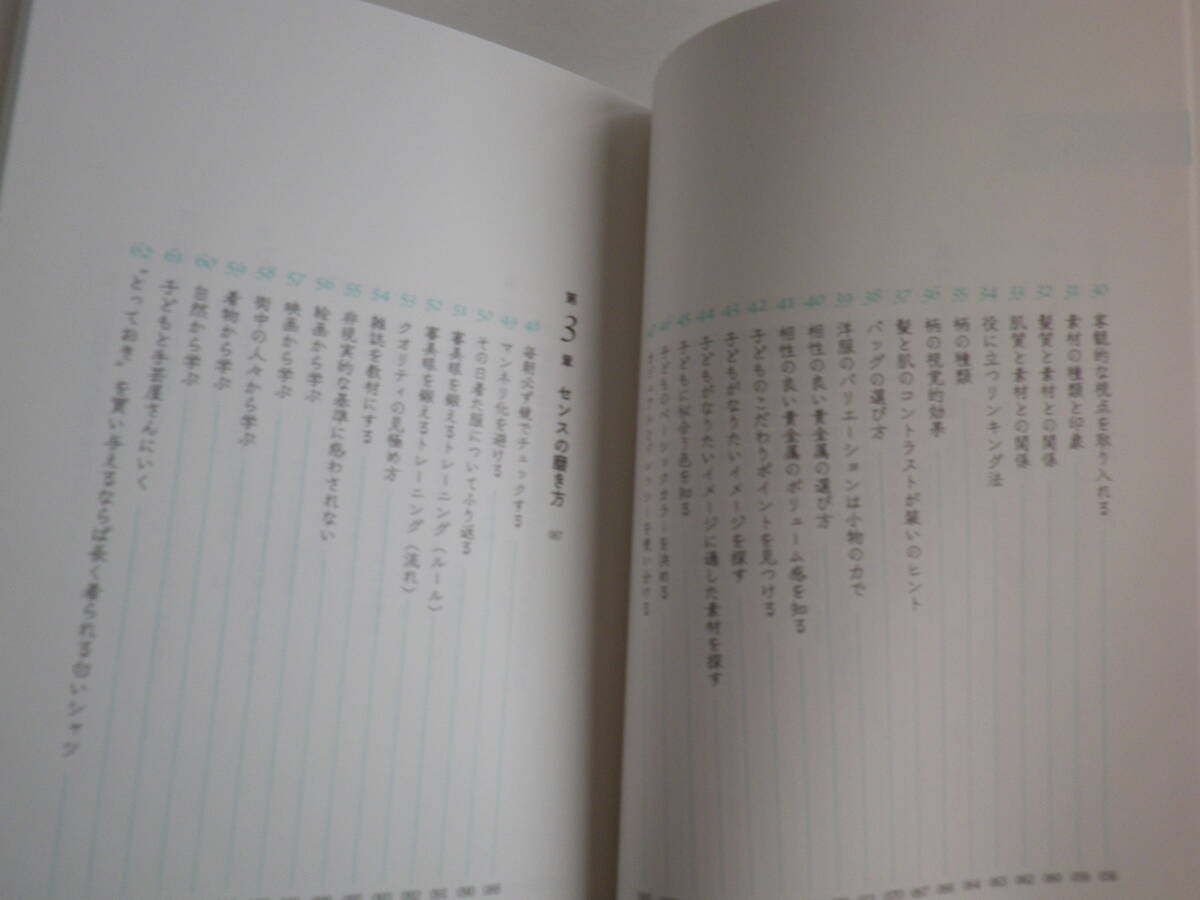 30 客観的な視点を取り入れる
31 素材の種類と印象
32 髪質と素材との関係
33 肌質と素材との関係
34 役に立つリンキング法
35 柄の種類
36 柄の視覚的効果
37 髪と肌のコントラストが装いのヒント
38 バッグの選び方
39 洋服のバリエーションは小物の力で
40 相性の良い貴金属の選び方
41 相性の良い貴金属のボリューム感を知る
42 子どものこだわりポイントを見つける
43 子どもがなりたいイメージを探す
44 子どもがなりたいイメージに適した素材を探す
45 子どもに似合う色を知る
46 子どものベーシックカラーを決める
47 を使い分ける
第3章 センスの磨き方
48 毎朝必ず鏡でチェックする
49 マンネリ化を避ける
50 その日着た服についてふり返る
51 審美眼を鍛えるトレーニング（ルール）
52 審美眼を鍛えるトレーニング（流れ）
53 クオリティの見極め方
54 雑誌を教材にする
55 非現実的な基準に惑わされない
56 絵画から学ぶ
57 映画から学ぶ
58 街中の人々から学ぶ
59 着物から学ぶ
60 自然から学ぶ
61 子どもと手芸屋さんにいく
62 “とっておき”を買い与えるならば長く着られる白いシャツ